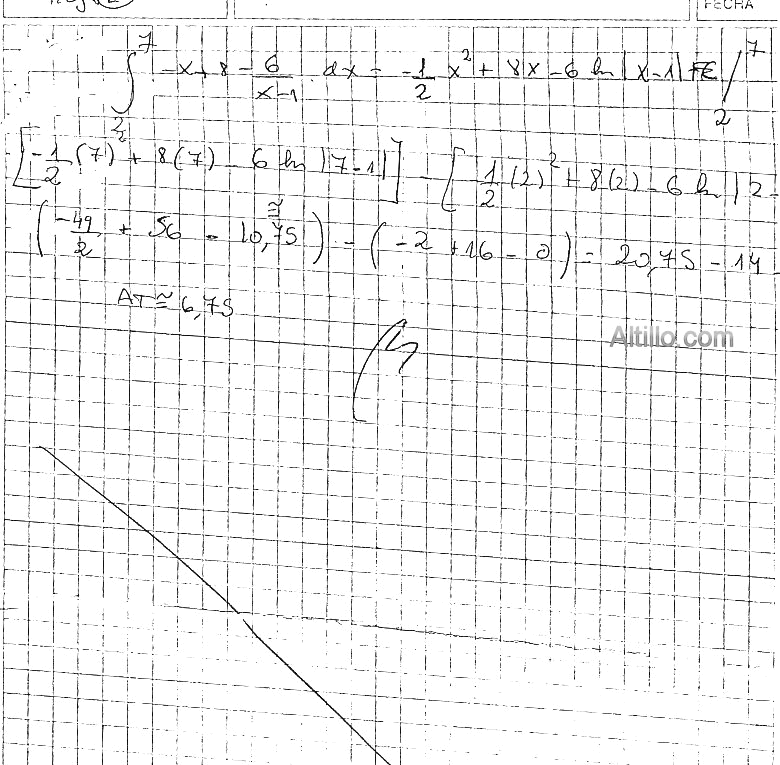 FECHA
∫₂⁷ -x+8 - 6/(x-1) dx = -1/2 x² + 8x - 6 ln |x-1| /₂⁷
[-1/2 (7)² + 8(7) - 6 ln |7-1|] - [-1/2 (2)² + 8(2) - 6 ln |2-
(-49/2 + 56 - 10,75) - (-2 + 16 - 0) = 20,75 - 14
≅
AT ≅ 6,75
Altillo.com